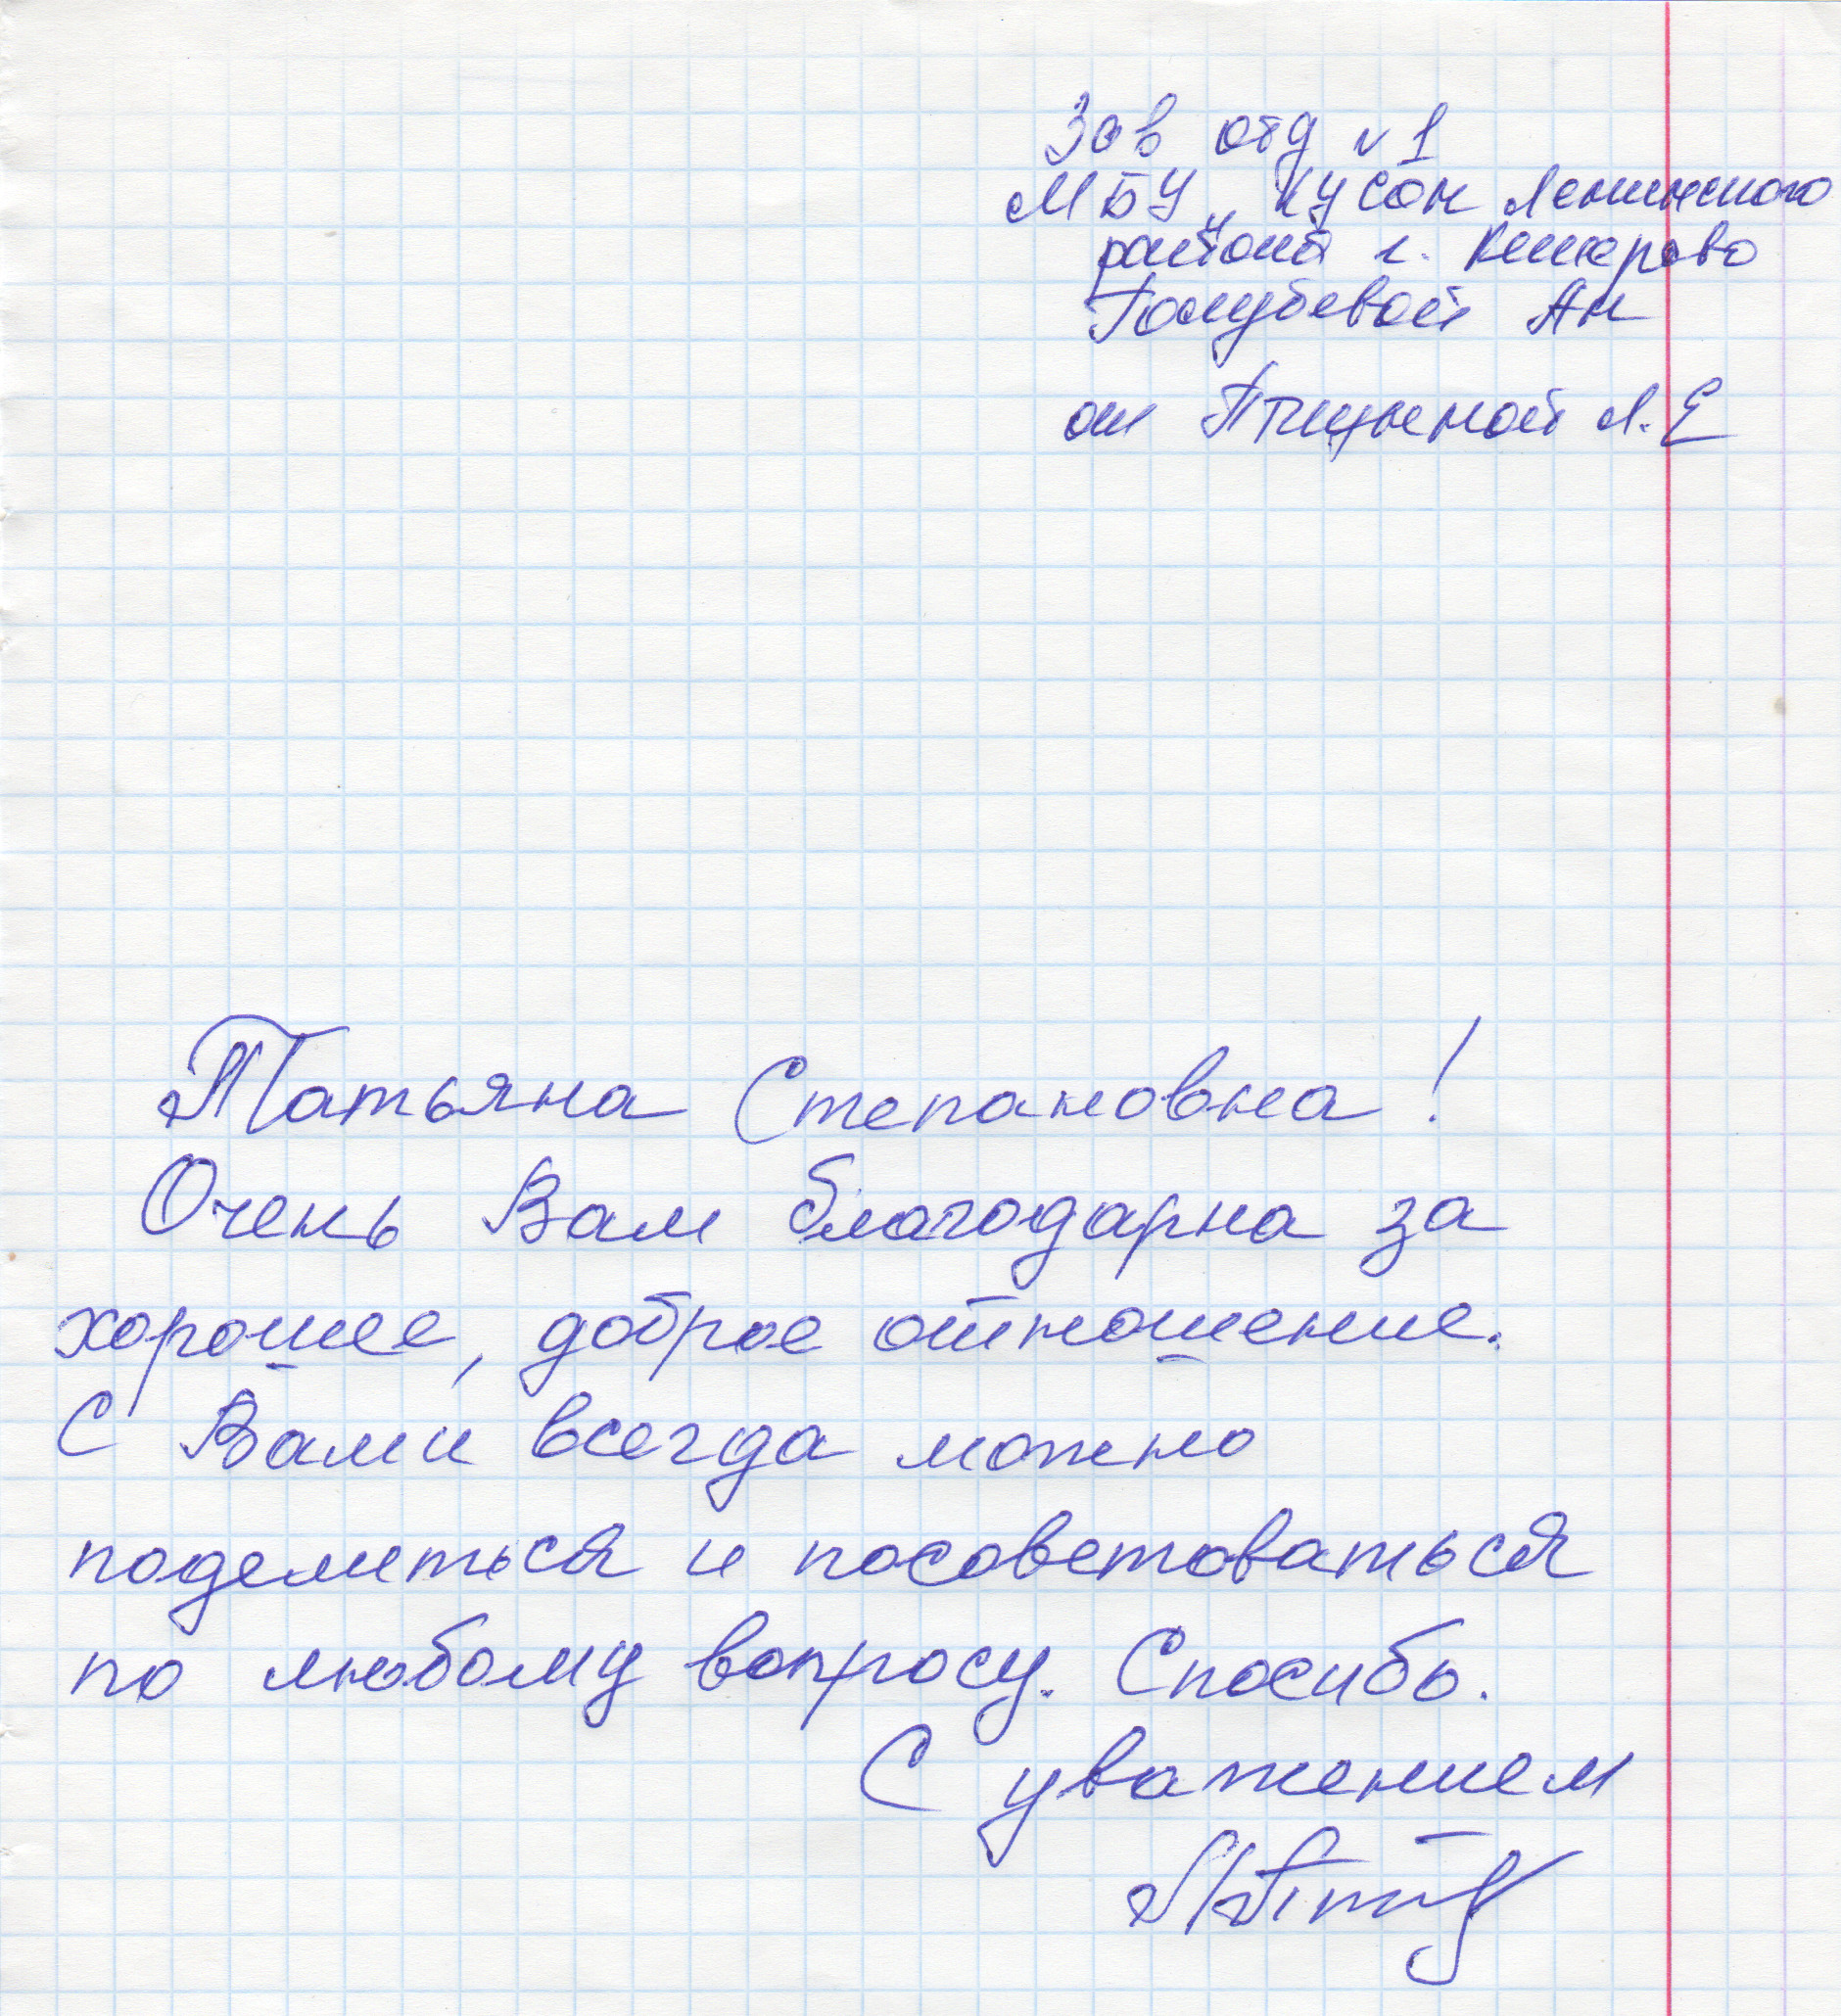 Зав отд № 1
МБУ „КЦСОН Ленинского
района г. Кемерово
Голубевой АН
от Птицыной Л.Е
Татьяна Степановна!
Очень Вам благодарна за
хорошее, доброе отношение.
С Вами всегда можно
поделиться и посоветоваться
по любому вопросу. Спасибо.
С уважением